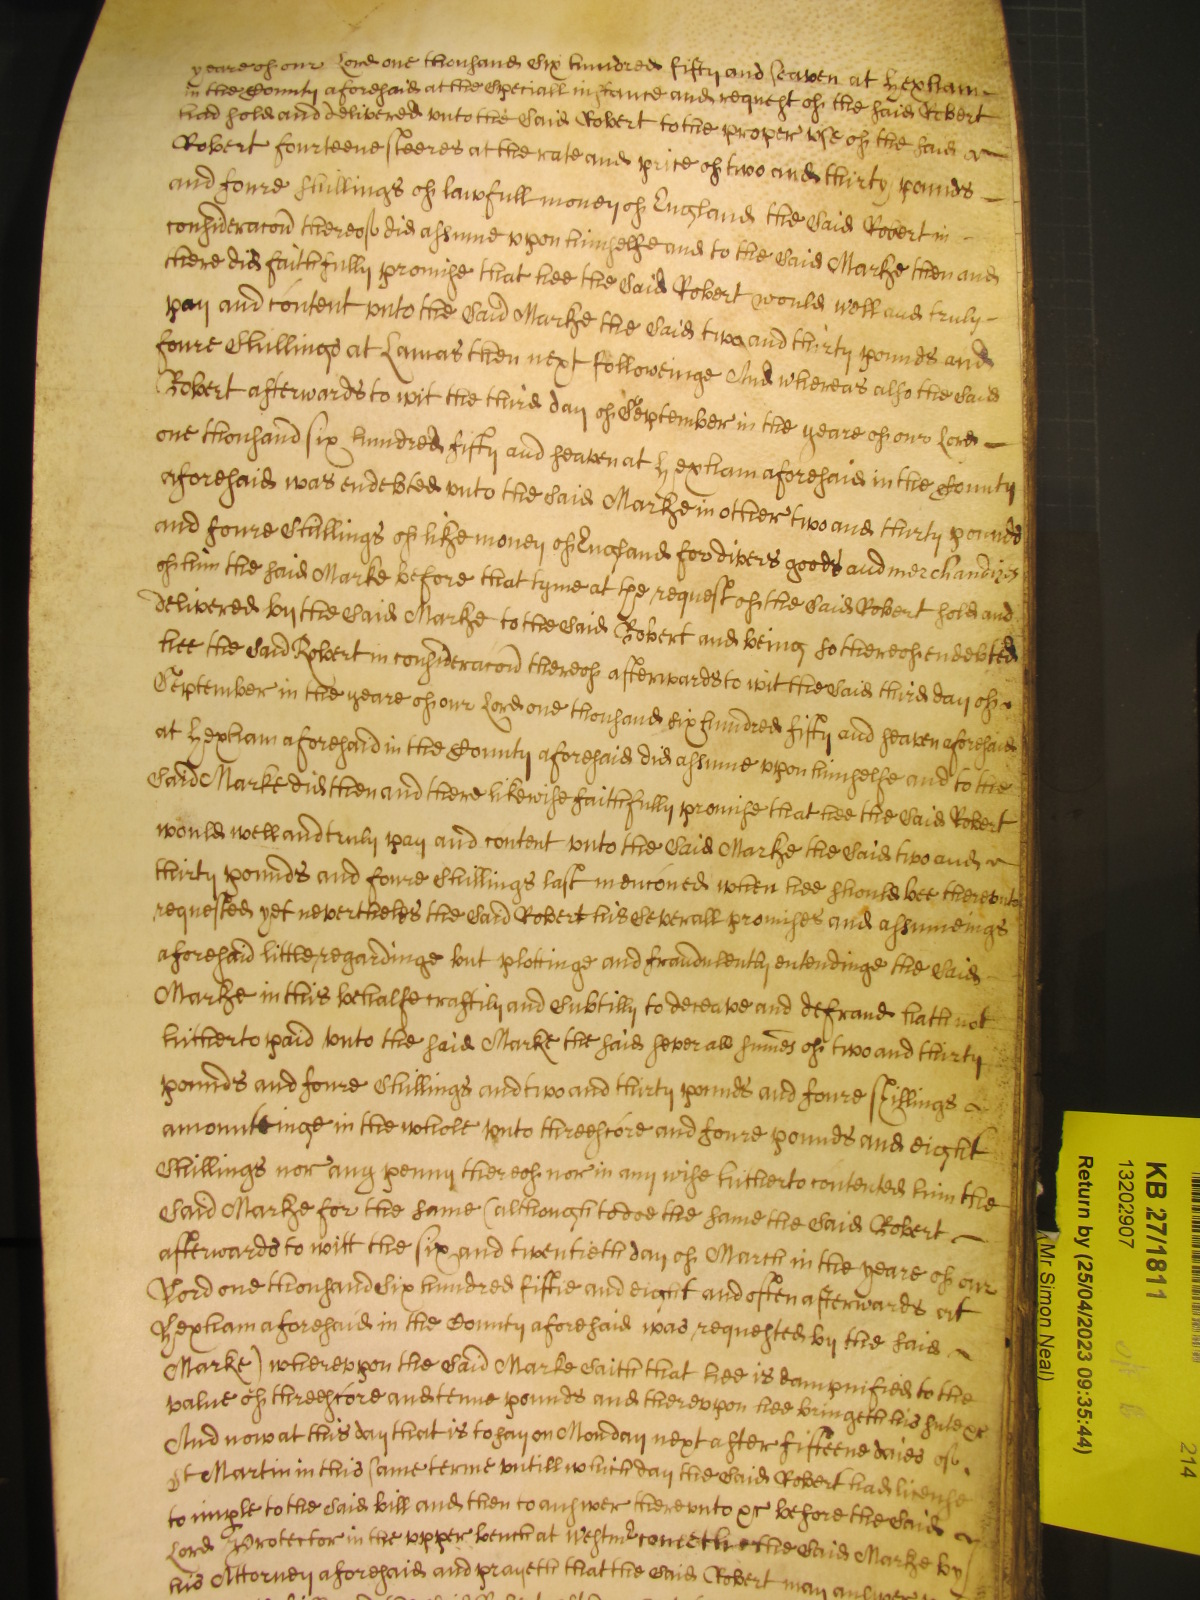 yeare of our Lord one thousand Six hundred fifty and seaven at Hexham
in the County aforesaid at the Speciall instance and request of the said Robert
had sold and delivered vnto the Said Robert to the proper vse of the said
Robert fourteene steeres at the rate and price of two and thirty pounds
and foure shillings of lawfull money of England the Said Robert in
consideracon thereof did assume vpon himselfe and to the Said Marke then and
there did faithfully promise that hee the Said Robert would well and truly
pay and content vnto the Said Marke the Said two and thirty pounds and
foure Shillings at Lamas then next followeinge And whereas also the Said
Robert afterwards to wit the third day of September in the yeare of our Lord
one thousand six hundred fifty and seaven at Hexham aforesaid in the County
aforesaid was endebted vnto the Said Marke in other two and thirty pounds
and foure Shillings of like money of England for divers goods and merchandizes
of him the said Marke before that tyme at the request of the Said Robert sold and
delivered by the Said Marke to the Said Robert and being so thereof endebted
hee the Said Robert in consideracon thereof afterwards to wit the Said third day of
September in the yeare of our Lord one thousand six hundred fifty and seaven aforesaid
at Hexham aforesaid in the County aforesaid did assume vpon himselfe and to the
Said Marke did then and there likewise faithfully promise that hee the Said Robert
would well and truly pay and content vnto the Said Marke the Said two and
thirty pounds and foure Shillings last menconed when hee should bee therevnto
requested yet neverthelesse the Said Robert his Severall promises and assumeings
aforesaid little regardinge but plottinge and fraudulently entendinge the Said
Marke in this behalfe craftily and Subtilly to deceave and defraud hath not
hitherto paid vnto the said Marke the said severall sumes of two and thirty
pounds and foure Shillings and two and thirty pounds and foure shillings
amountinge in the whole vnto threescore and foure pounds and eight
Shillings nor any penny thereof nor in any wise hitherto contented him the
Said Marke for the same (although to doe the same the Said Robert
afterwards to witt the six and twentieth day of March in the yeare of our
Lord one thousand Six hundred fiftie and eight and often afterwards att
Hexham aforesaid in the County aforesaid was requested by the said
Marke) wherevpon the Said Marke Saith that hee is dampnified to the
value of threescore and tenne pounds and therevpon hee bringeth his suite &c
And now at this day that is to say on Monday next after fifteene daies of
St Martin in this same terme vntill which day the Said Robert had license
to imple to the Said bill and then to answer therevnto &c before the Said
Lord Protector in the vpper bench at Westmr cometh the Said Marke by
his Attorney aforesaid and prayeth that the Said Robert may answer
KB 27/1811
13202907
Return by (25/04/2023 09:35:44)
(Mr Simon Neal)
214